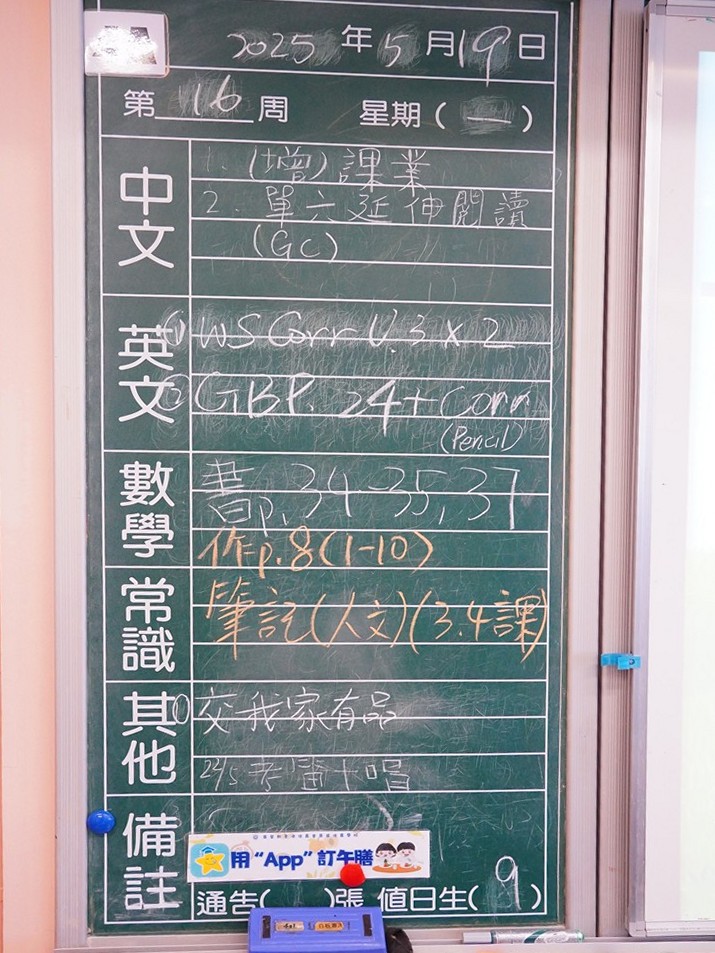 2025年5月19日
第16周 星期(一)
中文
1. (增)課業
2. 單六延伸閱讀
(GC)
英文
① WS Corr U.3 x 2
② GBP. 24 + Corr
(Pencil)
數學
書p.34-35,37
作p.8(1-10)
常識
筆記(人文)(3.4課)
其他
① 交我家有品
22/5 考 唱
備註
用“App”訂午膳
通告( )張 值日生(9)